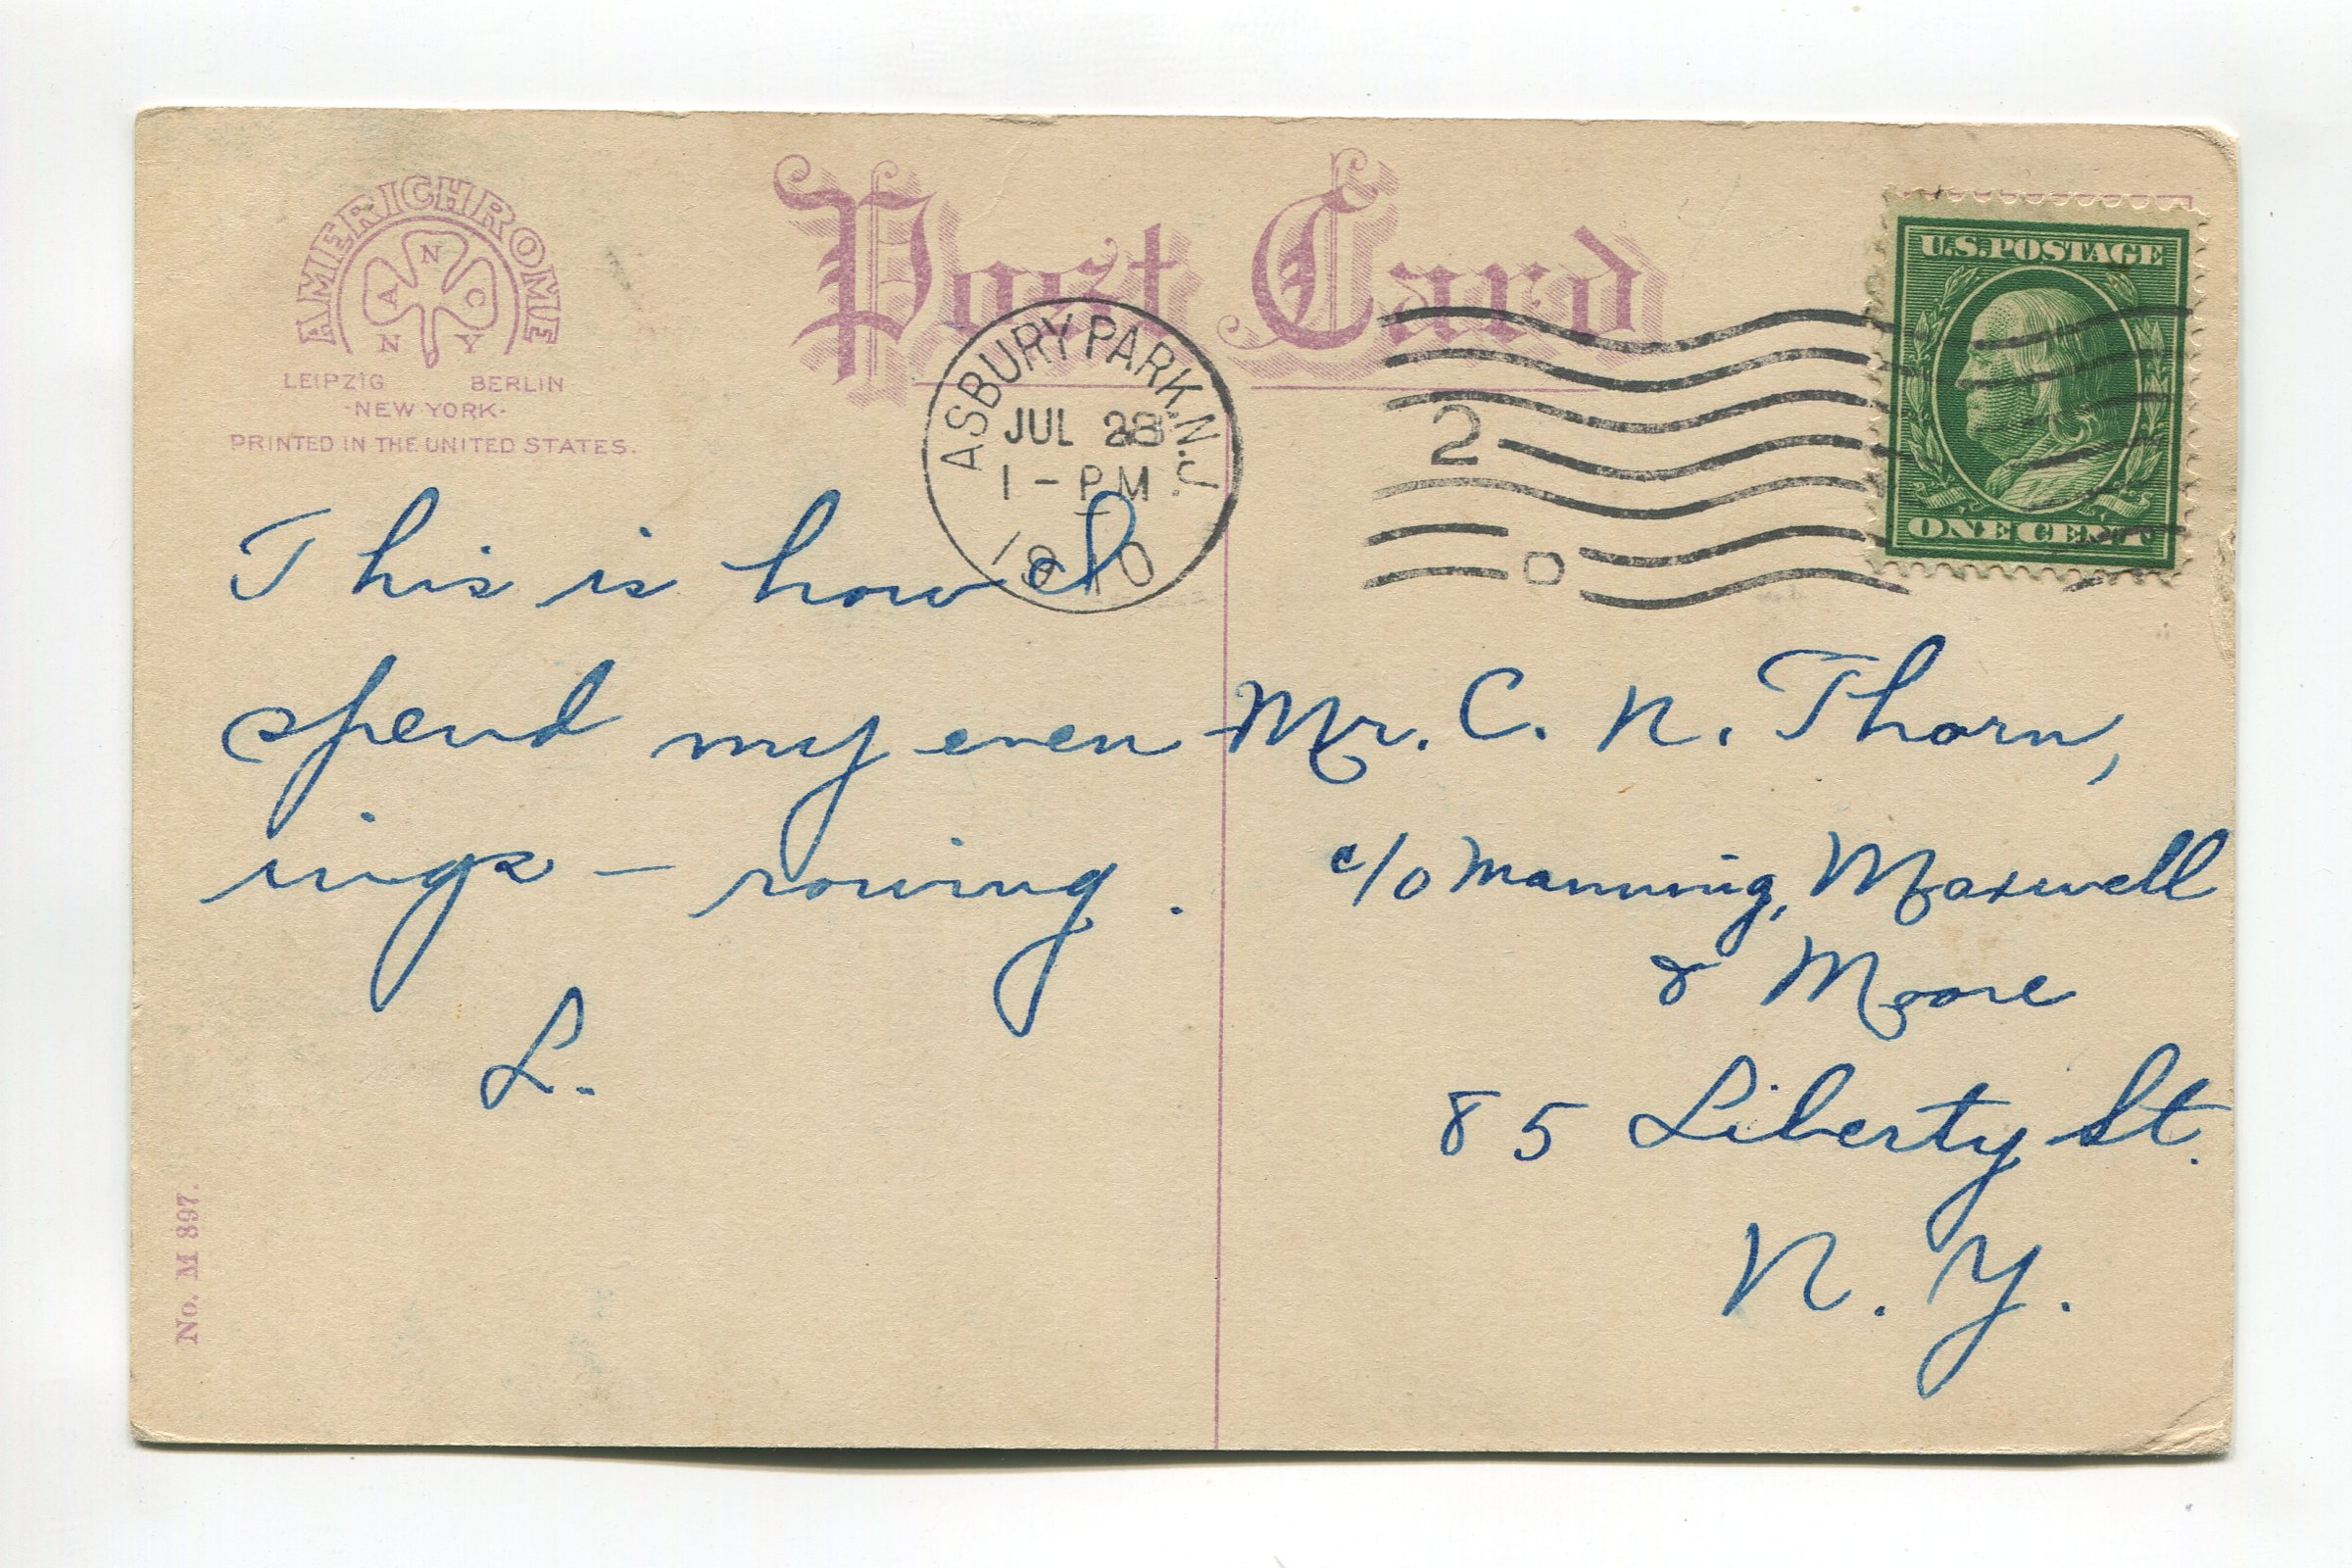 AMERICHROME
A N C
N Y
LEIPZIG BERLIN
-NEW YORK-
PRINTED IN THE UNITED STATES.
Post Card
ASBURY PARK, N.J.
JUL 28
1 - PM
1910
2
U.S. POSTAGE
ONE CENT
This is how I
spend my even
ings — rowing.
L.
Mr. C. N. Thorn,
c/o Manning, Maxwell
& Moore
85 Liberty St.
N. Y.
No. M 897.